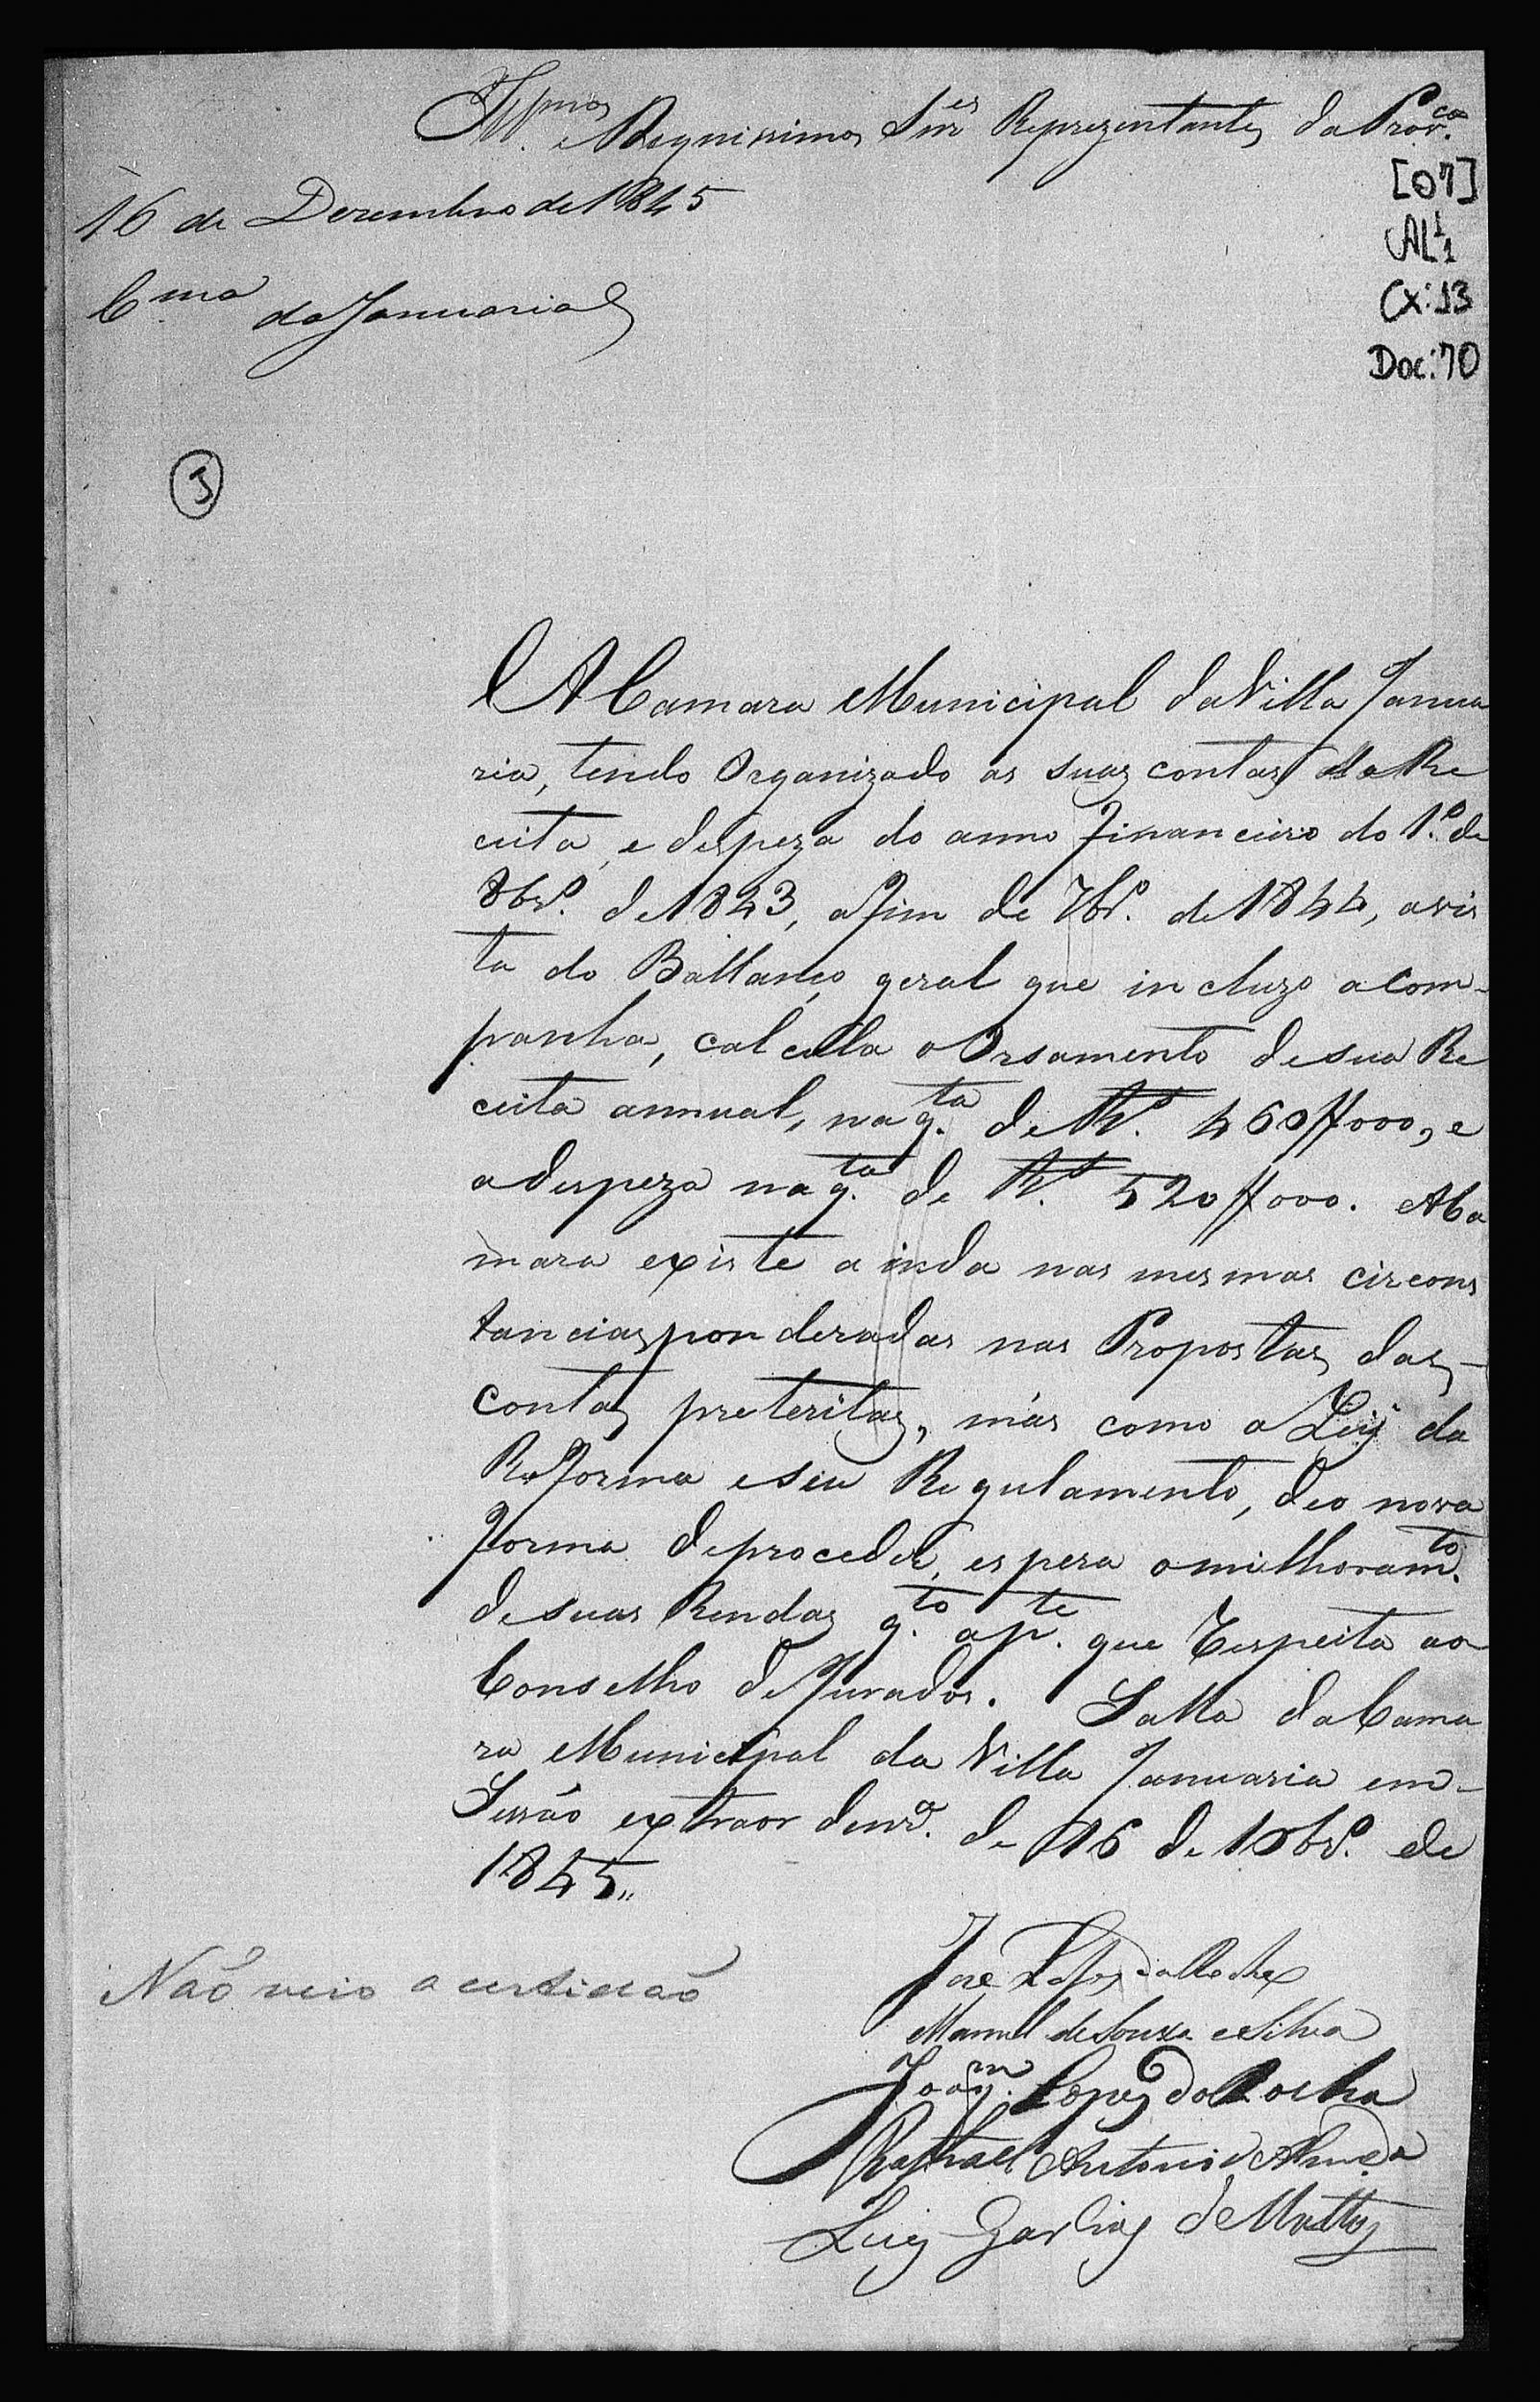 Ill.mos e Degnissimos Snr.es Reprezentantes da Prov.ca
16 de Dezembro de 1845
C.ma da Januaria
[07]
AL 1 1
Cx: 13
Doc: 70
J
A Camara Municipal da Villa Janua
ria, tendo Organizado as suas contas da Re
ceita, e despeza do anno financeiro do 1.º de
8br.º de 1843, a fim de 7br.º de 1844, a vis
ta do Ballanço geral que incluzo acom-
panha, calculla o Orsamento de sua Re
ceita annual, na q.ta de R.s 460//000, e
a despeza na q.ta de R.s 520//000. A Ca
mara existe ainda nas mesmas circons
tancias ponderadas nas Propostas das
contas preteritas, más como a Ley da
Reforma e seu Regulamento, deo nova
forma de proceder, espera o milhoram.to
de suas Rendas q.to a p.te que Respeita ao
Conselho de Jurados. Salla da Cama
ra Municipal da Villa Januaria em
Sessão extraordenr.ª de 16 de 10br.º de
1845,,
Não veio a certidão
José
Manuel de Souza e Silva
Joaq.m Lopes da Rocha
Raphael Antonio d'Almeda
Luiz de Mattos